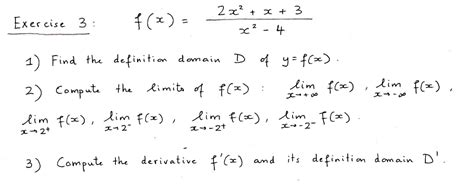 Exercise 3 : f(x) = (2x² + x + 3) / (x² - 4)
1) Find the definition domain D of y = f(x).
2) Compute the limits of f(x) : lim x→+∞ f(x), lim x→-∞ f(x),
lim x→2⁺ f(x), lim x→2⁻ f(x), lim x→-2⁺ f(x), lim x→-2⁻ f(x).
3) Compute the derivative f'(x) and its definition domain D'.